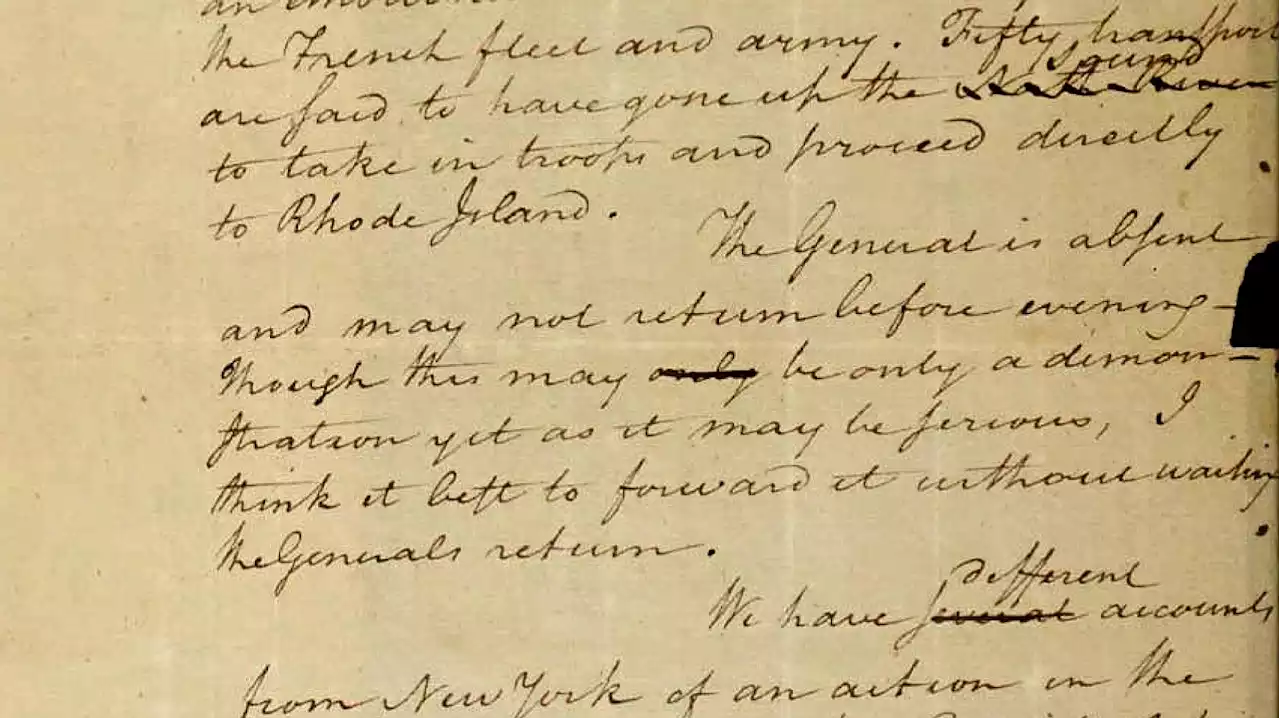 the French fleet and army. Fifty transport
Sound
are said to have gone up the North River
to take in troops and proceed directly
to Rhode Island.
The General is absent
and may not return before evening —
Though this may only be only a demon—
stration yet as it may be serious, I
think it best to forward it without waiting
the Generals return.
different
We have several accounts
from New York of an action in the